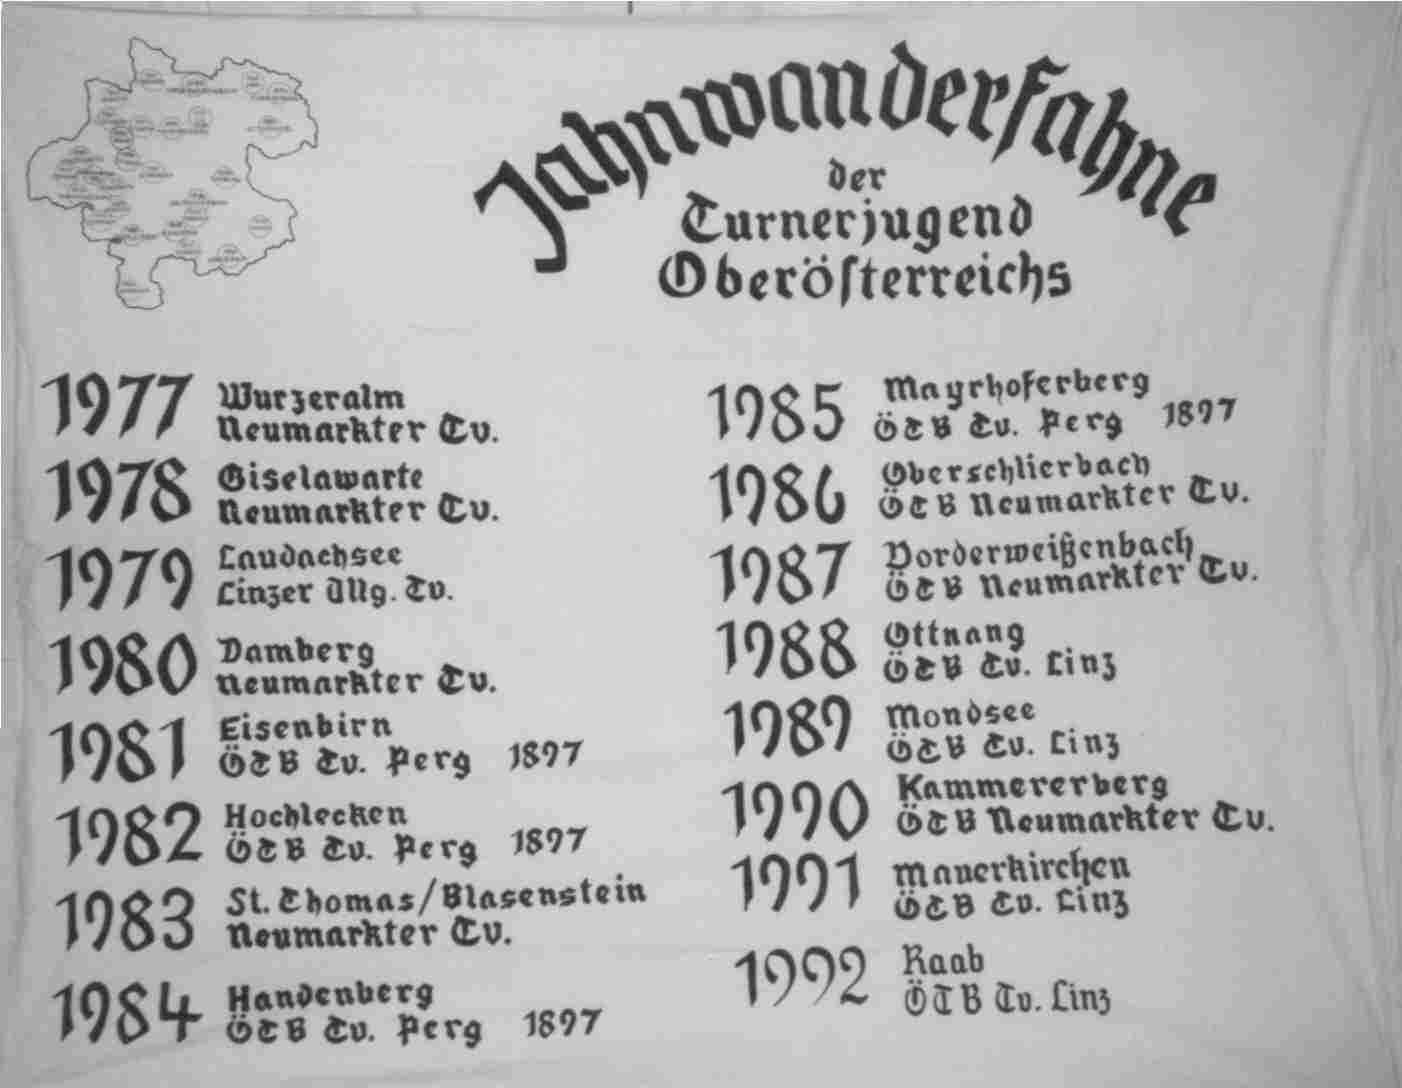 Jahnwanderfahne
der
Turnerjugend
Oberöſterreichs
1977 Wurzeralm
Neumarkter Tv.
1978 Giselawarte
Neumarkter Tv.
1979 Laudachsee
Linzer Allg. Tv.
1980 Damberg
Neumarkter Tv.
1981 Eisenbirn
ÖTB Tv. Perg 1897
1982 Hochlecken
ÖTB Tv. Perg 1897
1983 St. Thomas/Blasenstein
Neumarkter Tv.
1984 Handenberg
ÖTB Tv. Perg 1897
1985 Mayrhoferberg
ÖTB Tv. Perg 1897
1986 Oberschlierbach
ÖTB Neumarkter Tv.
1987 Vorderweißenbach
ÖTB Neumarkter Tv.
1988 Ottnang
ÖTB Tv. Linz
1989 Mondsee
ÖTB Tv. Linz
1990 Kammererberg
ÖTB Neumarkter Tv.
1991 Mauerkirchen
ÖTB Tv. Linz
1992 Raab
ÖTB Tv. Linz